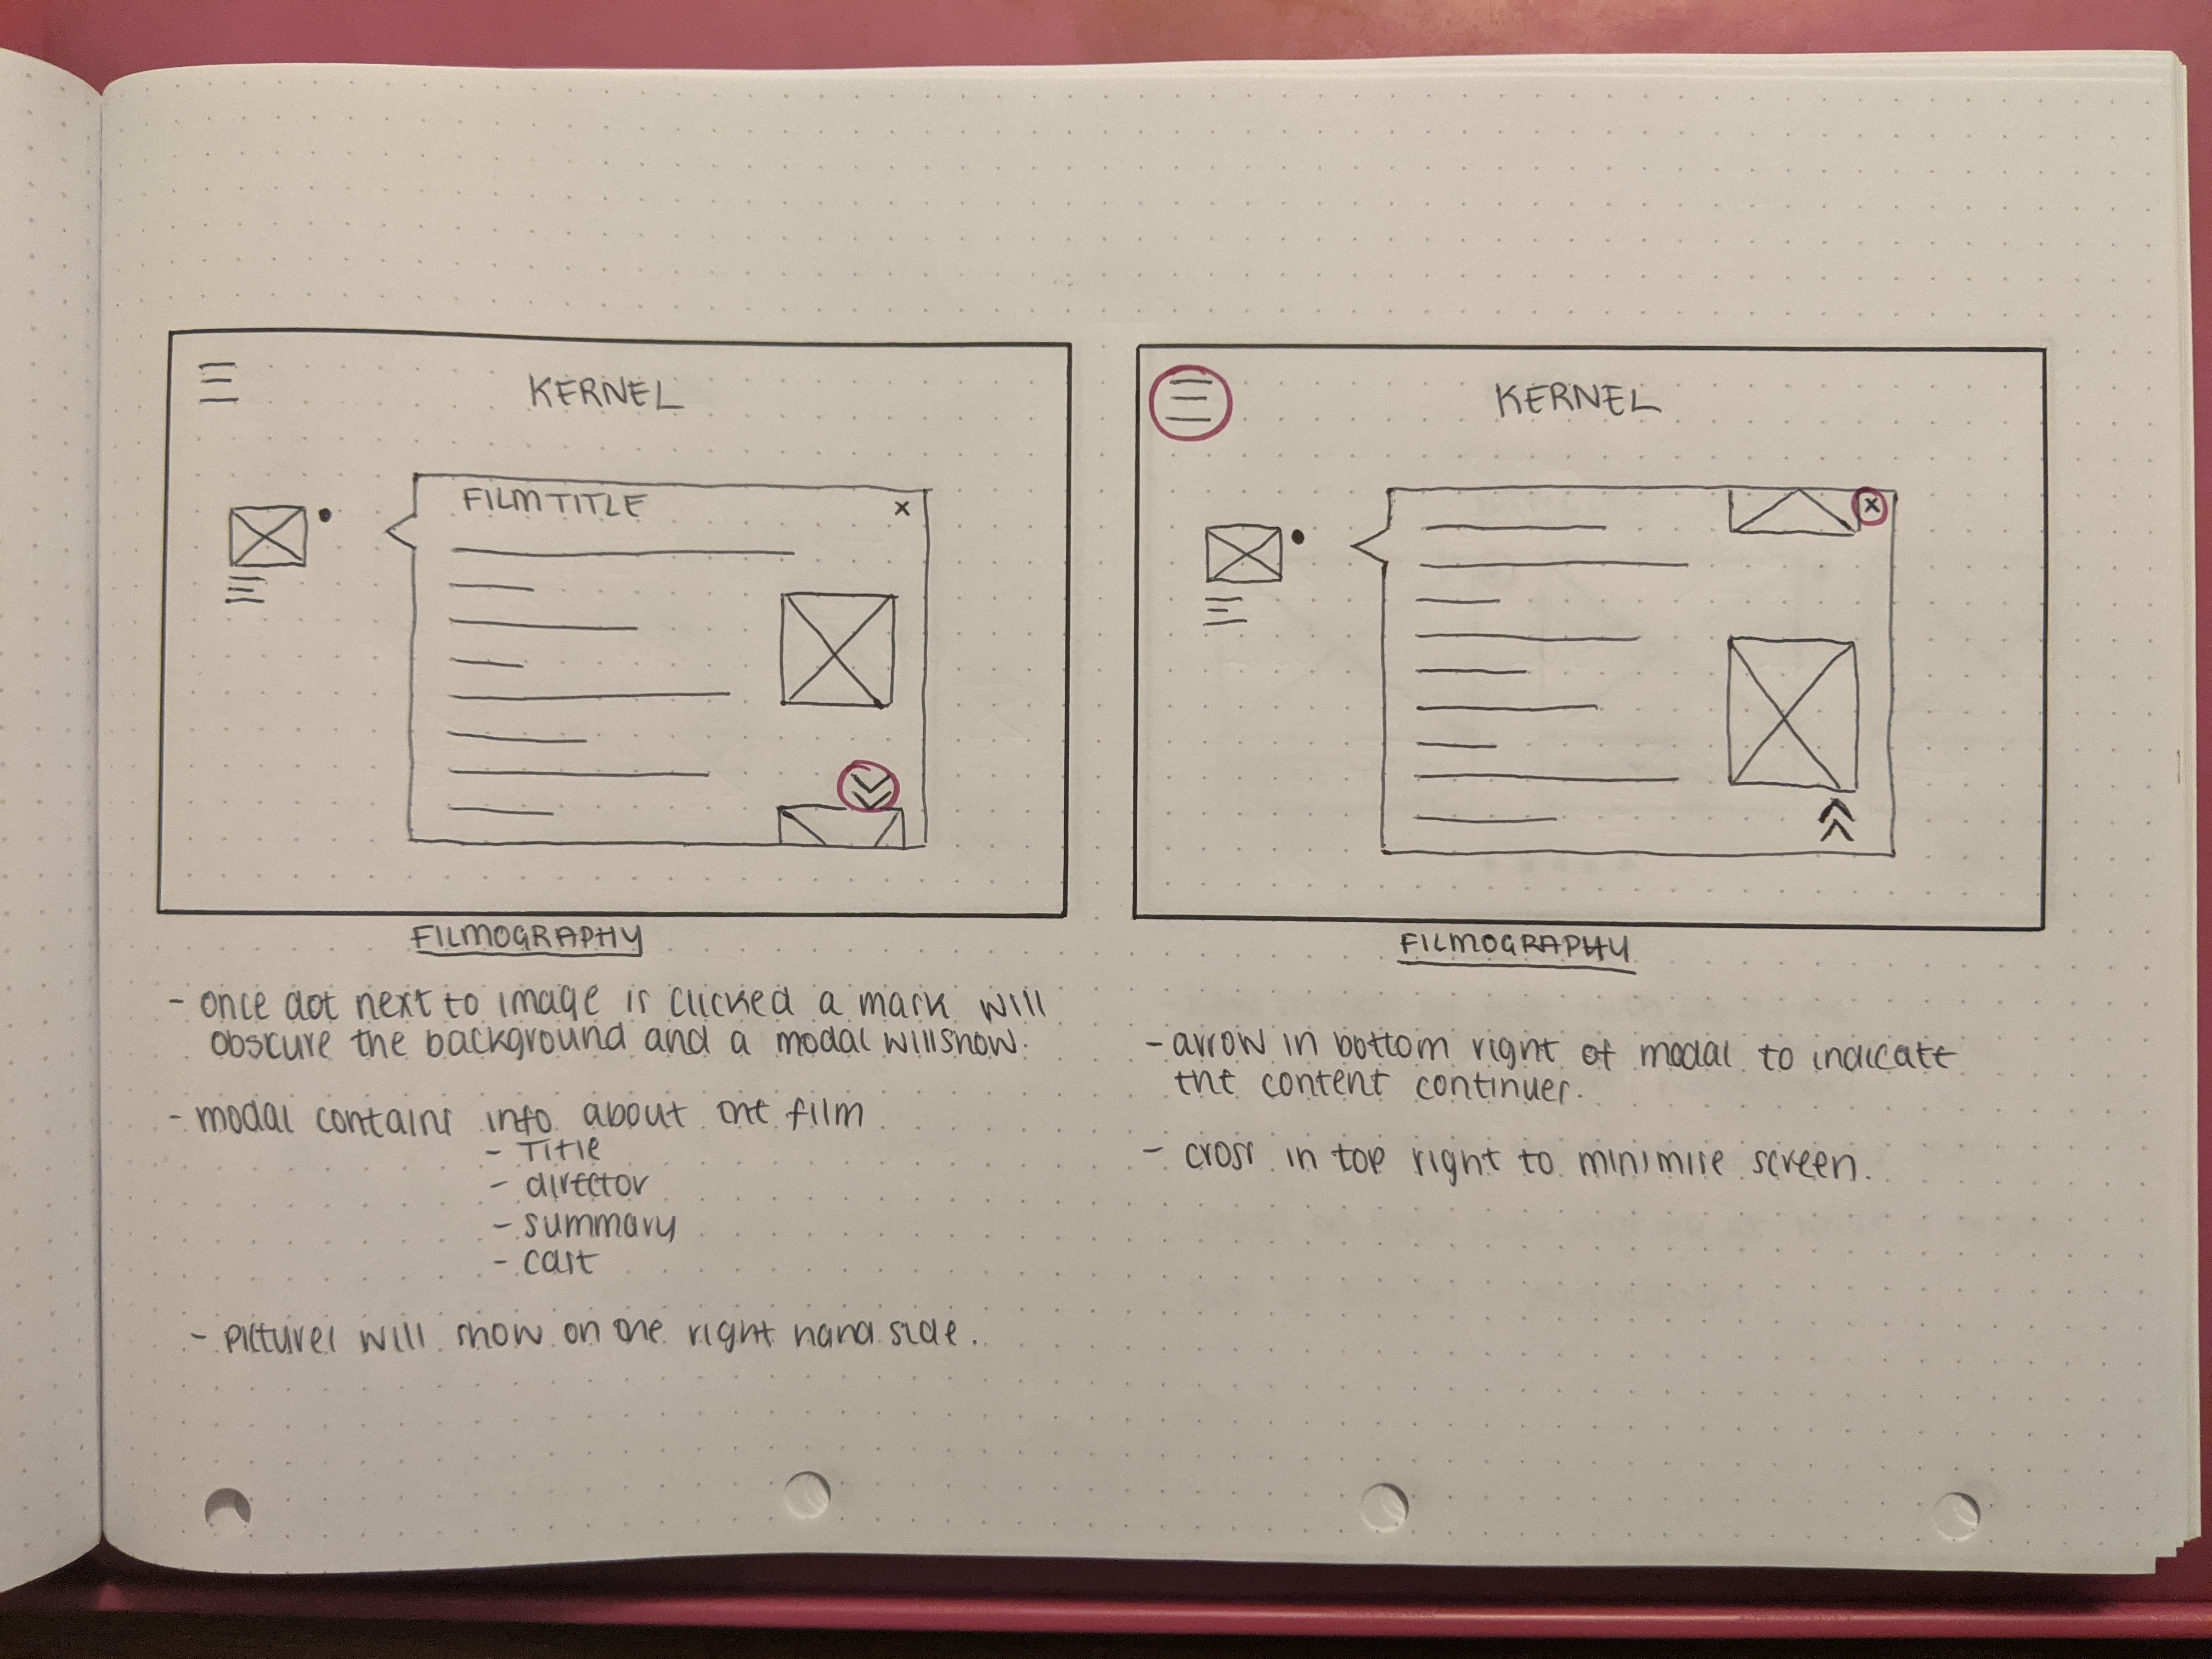 KERNEL
FILM TITLE
x
FILMOGRAPHY
- once dot next to image is clicked a mask will
obscure the background and a modal will show.
- modal contains info about the film
- Title
- director
- summary
- cast
- pictures will show on the right hand side.
KERNEL
x
FILMOGRAPHY
- arrow in bottom right of modal to indicate
the content continues.
- cross in top right to minimise screen.